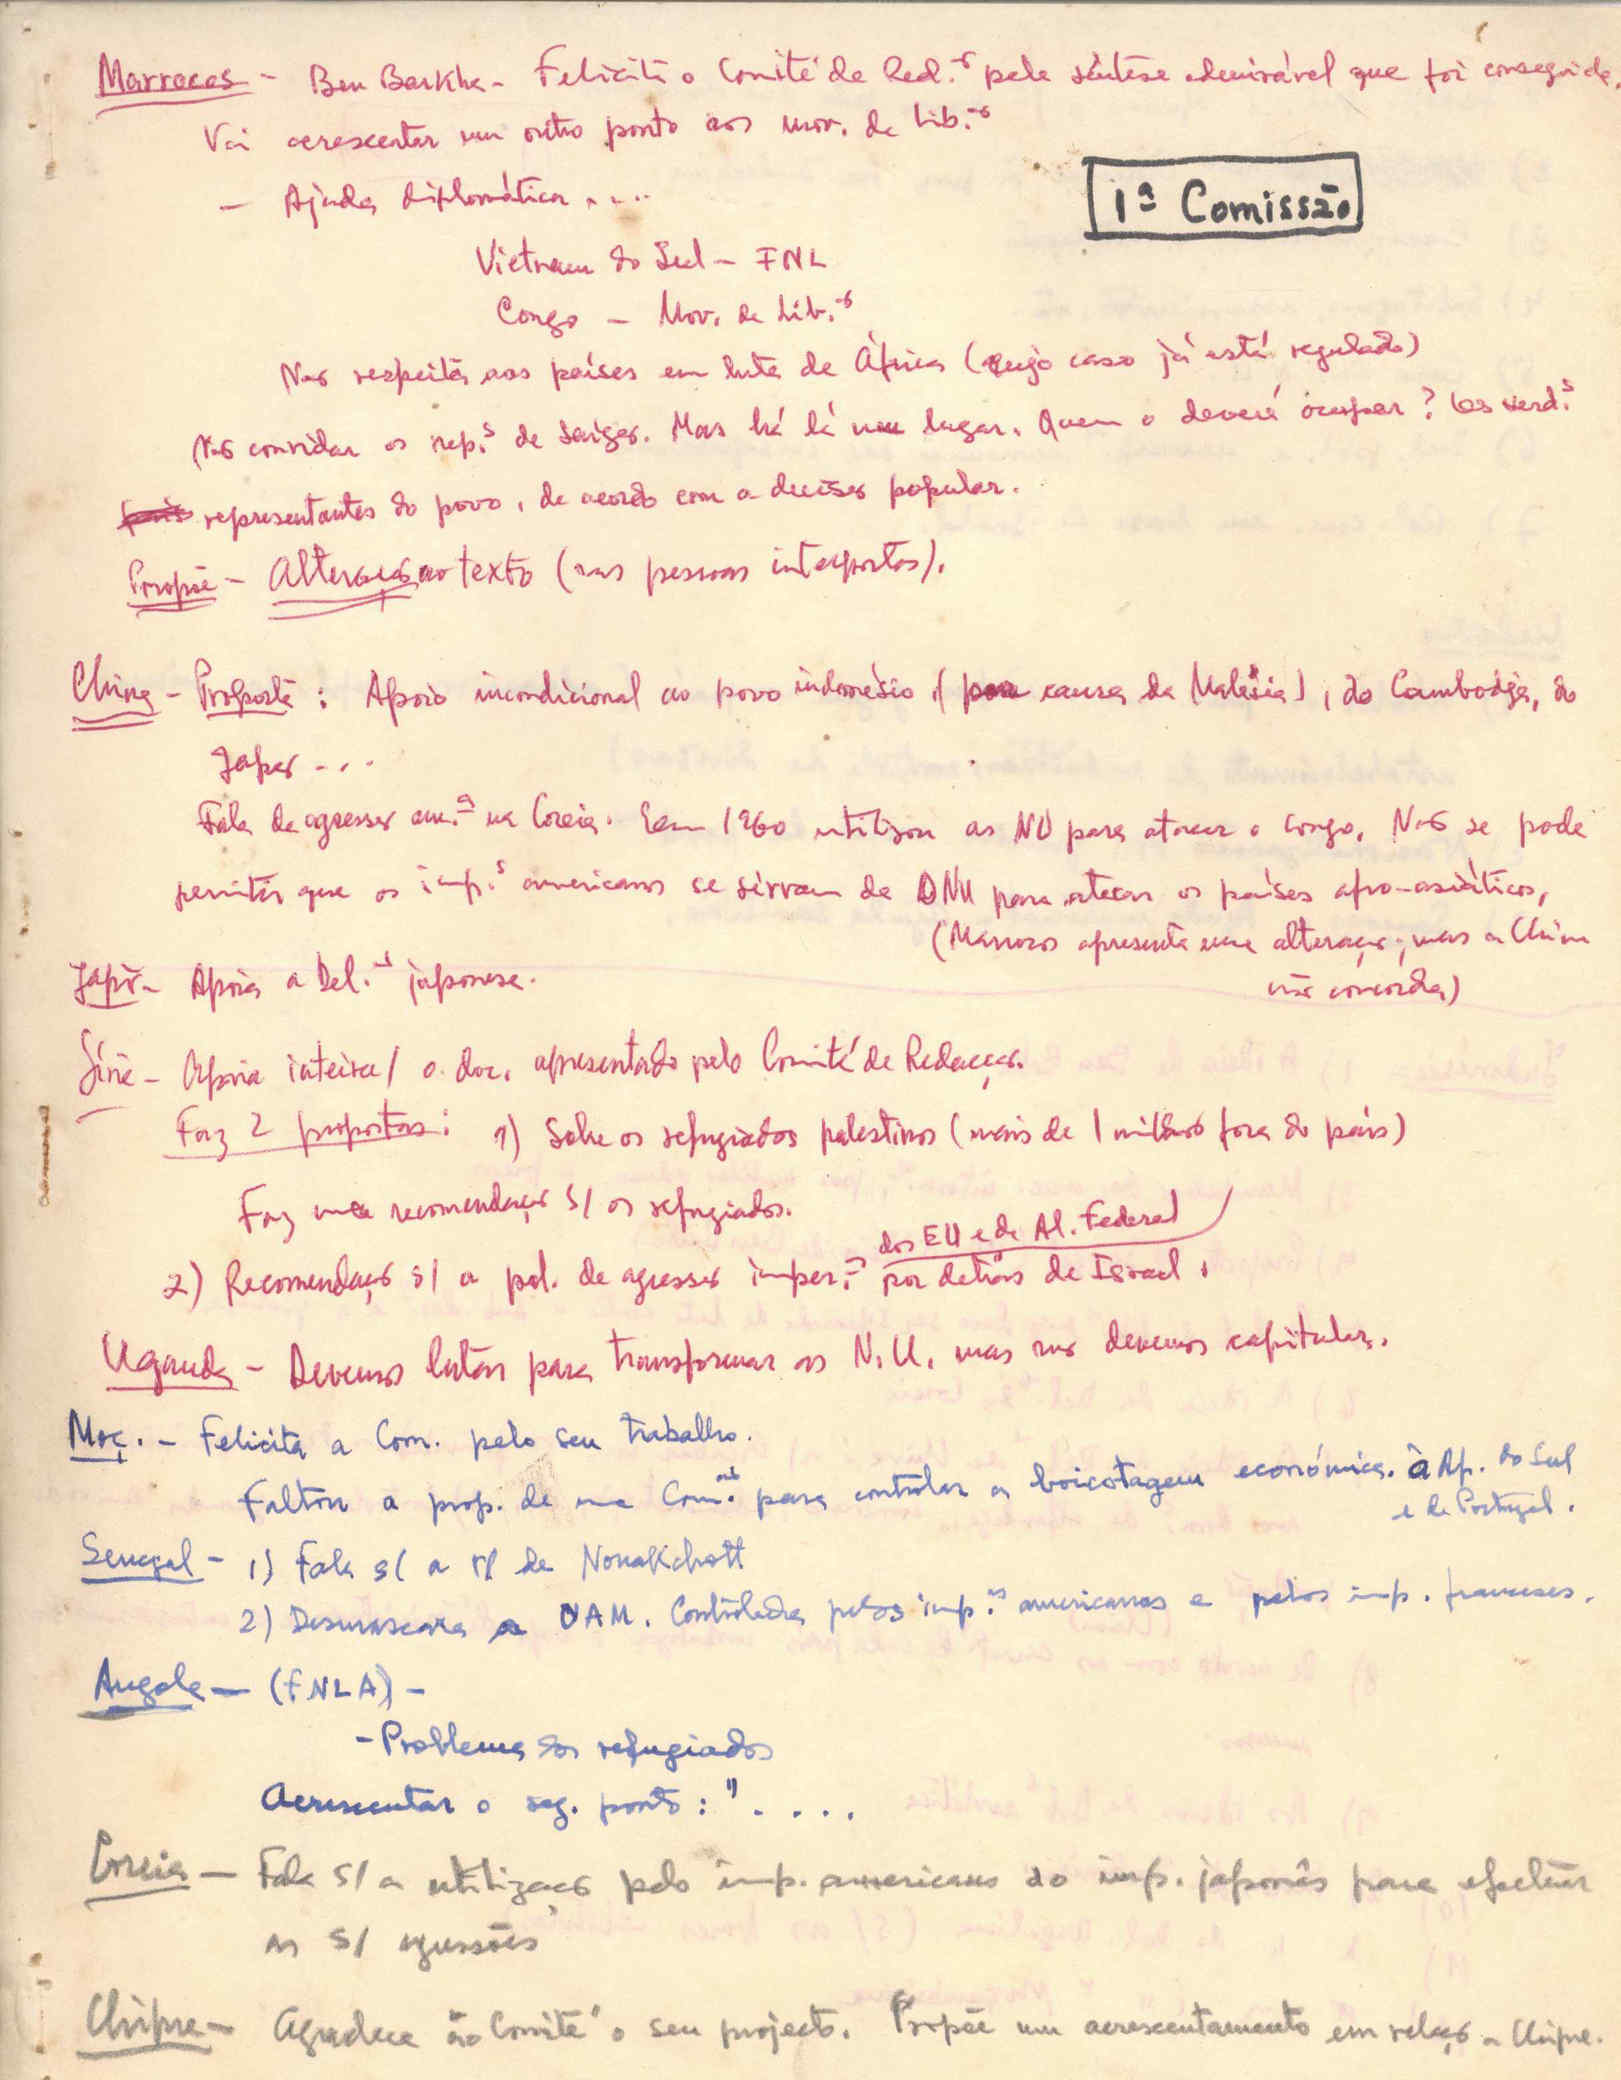 Marrocos - Ben Barkha - Felicita o Comité de Red.ão pela síntese admirável que foi conseguida.
Vai acrescentar um outro ponto aos mov. de Lib.ão
1ª Comissão
- Ajuda diplomática . . . .
Vietnam do Sul - FNL
Congo - Mov. de Lib.ão
Não respeita aos países em luta de África (cujo caso já está regulado)
Não convidar os rep.s de Saigão. Mas há lá um lugar. Quem o deverá ocupar? Os verd.s
representantes do povo, de acordo com a decisão popular.
Propõe - Alteração ao texto (nas pessoas interpostas).
China - Proposta: Apoio incondicional ao povo indonésio, (por causa da Malásia), do Cambodja, do
Japão - . .
Fala da agressão am.ª na Coreia. Em 1960 utilizou as NU para atacar o Congo. Não se pode
permitir que os imp.s americanos se sirvam da ONU para atacar os países afro-asiáticos,
(Marrocos apresenta uma alteração, mas a China
não concorda)
Japão - Apoia a Del.ão japonesa.
Síria - Apoia inteira/ o doc. apresentado pelo Comité de Redacção.
Faz 2 propostas: 1) Sobre os refugiados palestinos (mais de 1 milhão fora do país)
Faz uma recomendação s/ os refugiados.
dos EU e da Al. Federal
2) Recomendação s/ a pol. de agressão imper. por detrás de Israel.
Uganda - Devemos lutar para transformar as N.U. mas não devemos capitular.
Moç. - Felicita a Com. pelo seu trabalho.
Faltou a prop. de uma Com.ão para controlar a boicotagem económica à Af. do Sul
e de Portugal.
Senegal - 1) Fala s/ a de Nouakchott
2) Desmascara a OAM. Controlada pelos imp.as americanos e pelos imp. franceses.
Angola - (FNLA) -
- Problema dos refugiados
Acrescentar o seg. ponto: " . . . .
Coreia - Fala s/ a utilização pelo imp. americano do imp. japonês para efectuar
as s/ agressões
Chipre - Agradece ao Comité o seu projecto. Propõe um acrescentamento em relação a Chipre.